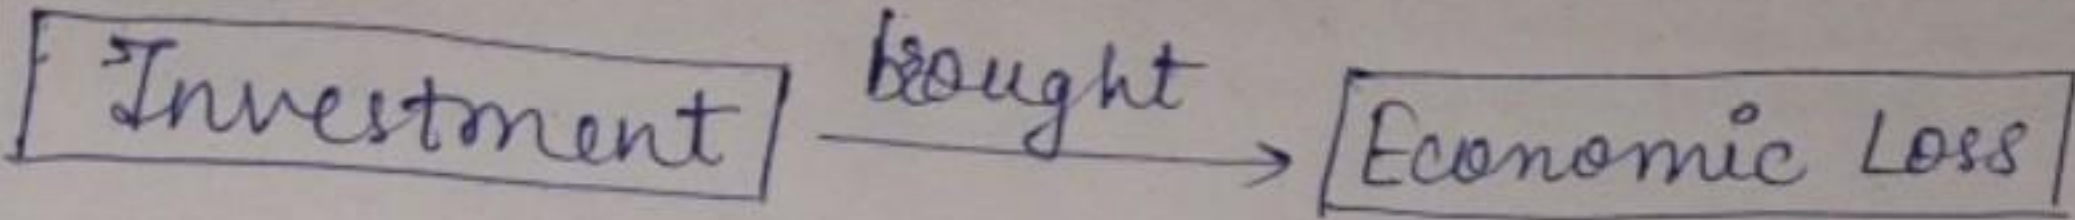 Investment
brought
Economic Loss